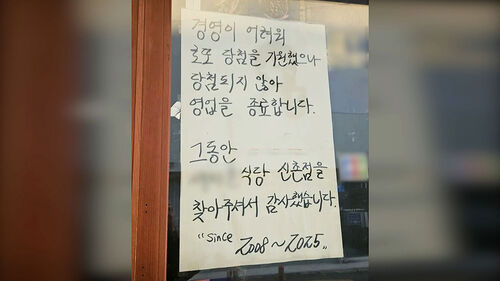 경영이 어려워
로또 당첨을 기원했으나
당첨되지 않아
영업을 종료합니다.
그동안
식당 신촌점을
찾아주셔서 감사했습니다.
"since 2008~2025"